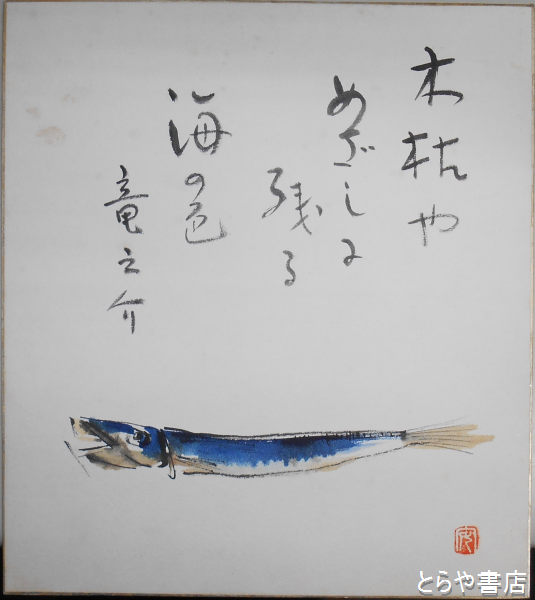 木枯や
めざしに
残る
海の色
竜之介
とらや書店